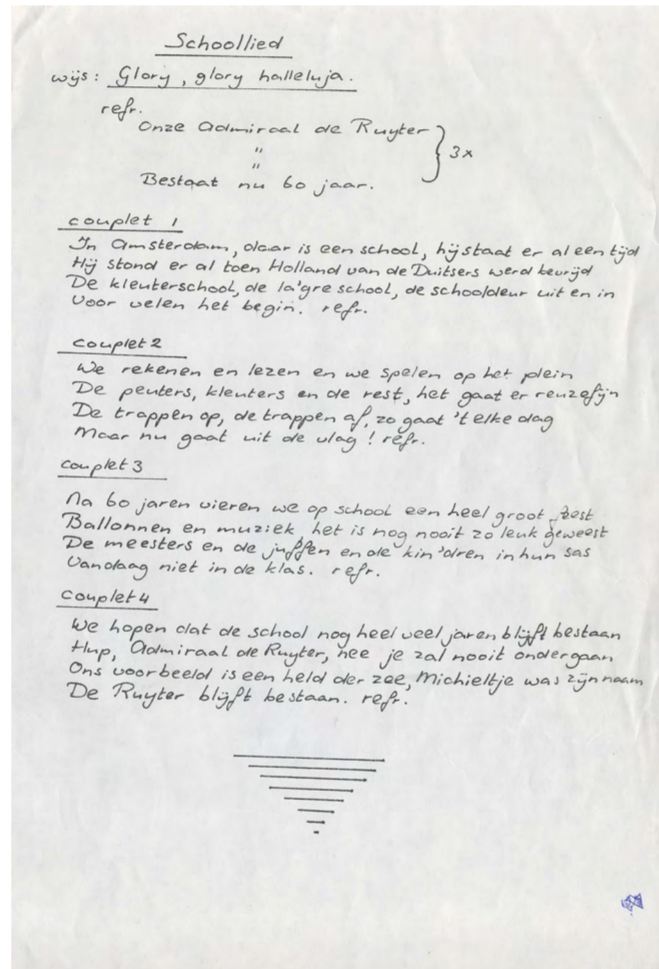 Schoollied
wijs: Glory, glory halleluja.
refr.
Onze Admiraal de Ruyter
"
" } 3x
Bestaat nu 60 jaar.
couplet 1
In Amsterdam, daar is een school, hij staat er al een tijd
Hij stond er al toen Holland van de Duitsers werd bevrijd
De kleuterschool, de la'gre school, de schooldeur uit en in
Voor velen het begin. refr.
couplet 2
We rekenen en lezen en we spelen op het plein
De peuters, kleuters en de rest, het gaat er reuzefijn
De trappen op, de trappen af, zo gaat 't elke dag
Maar nu gaat uit de vlag! refr.
couplet 3
Na 60 jaren vieren we op school een heel groot feest
Ballonnen en muziek het is nog nooit zo leuk geweest
De meesters en de juffen en de kin'dren in hun sas
Vandaag niet in de klas. refr.
couplet 4
We hopen dat de school nog heel veel jaren blijft bestaan
Hup, Admiraal de Ruyter, nee je zal nooit ondergaan
Ons voorbeeld is een held der zee, Michieltje was zijn naam
De Ruyter blijft bestaan. refr.